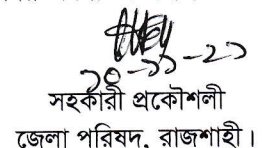 ১০-১১-২১
সহকারী প্রকৌশলী
জেলা পরিষদ, রাজশাহী।